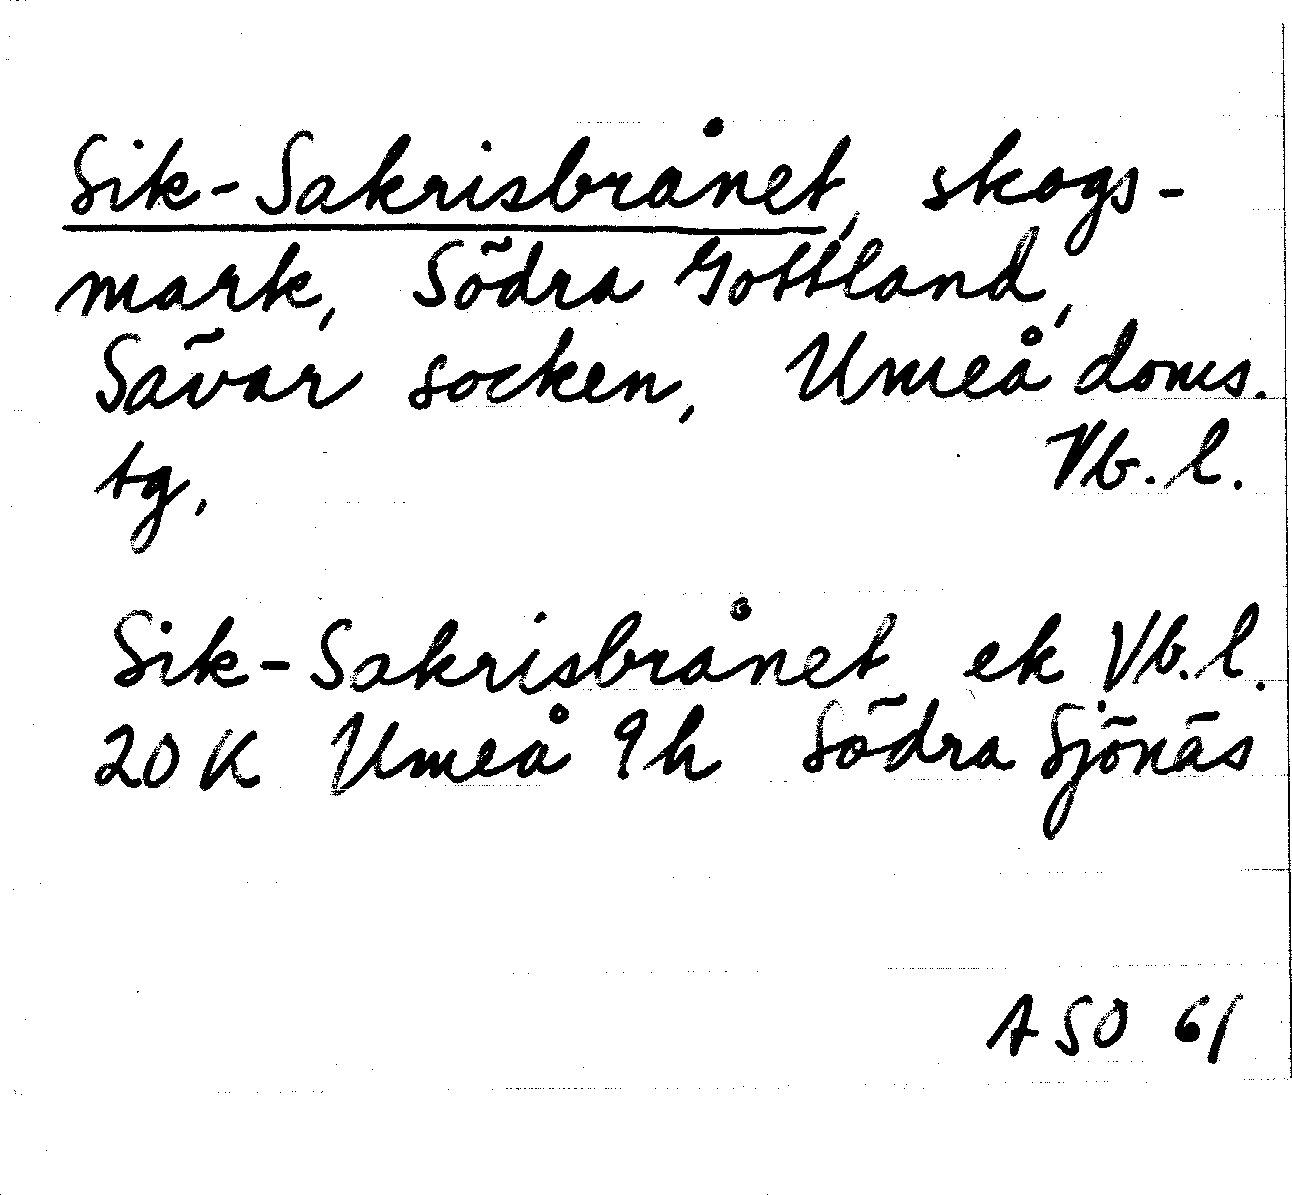 Sik-Sakrisbrånet, skogs-
mark, Södra Gottland,
Sävar socken, Umeå doms.
tg, Vb.l.
Sik-Sakrisbrånet ek Vb.l.
20K Umeå 9h Södra Sjönäs
ASO 61